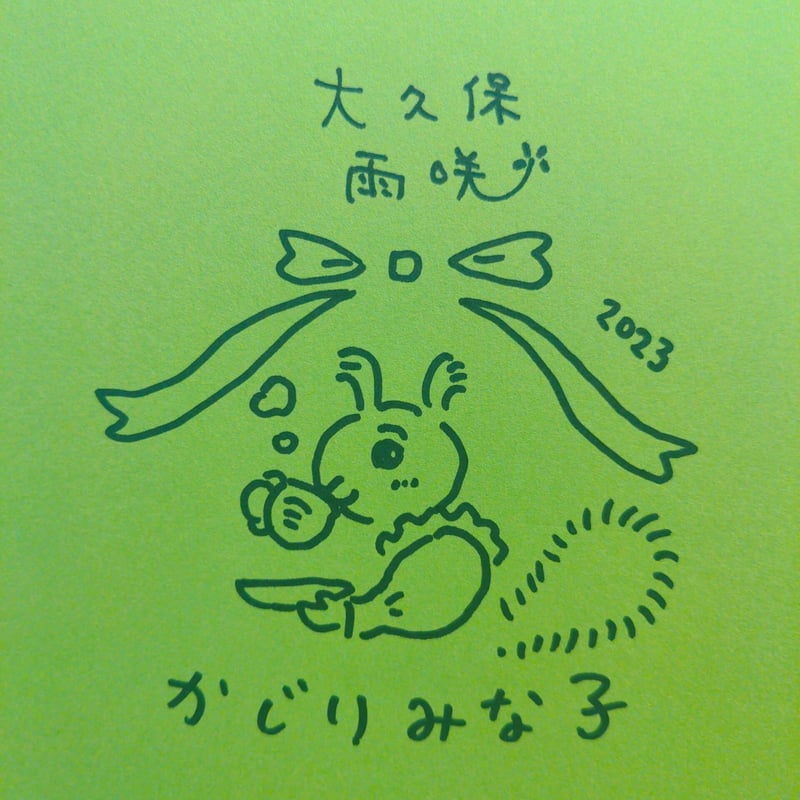 大久保
雨咲
2023
かじりみな子